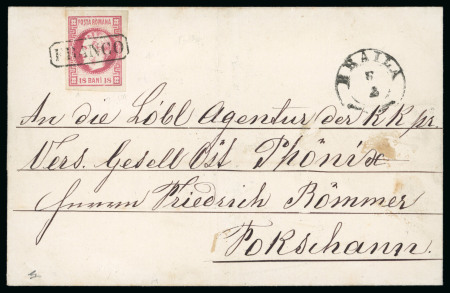 POSTA ROMANA
FRANCO
18 BANI 18
BRAILA
An die Löbl Agentur der KK pr.
Vers. Gesell Öst Phönix
Herrn Friedrich Römmer
Fokschann.